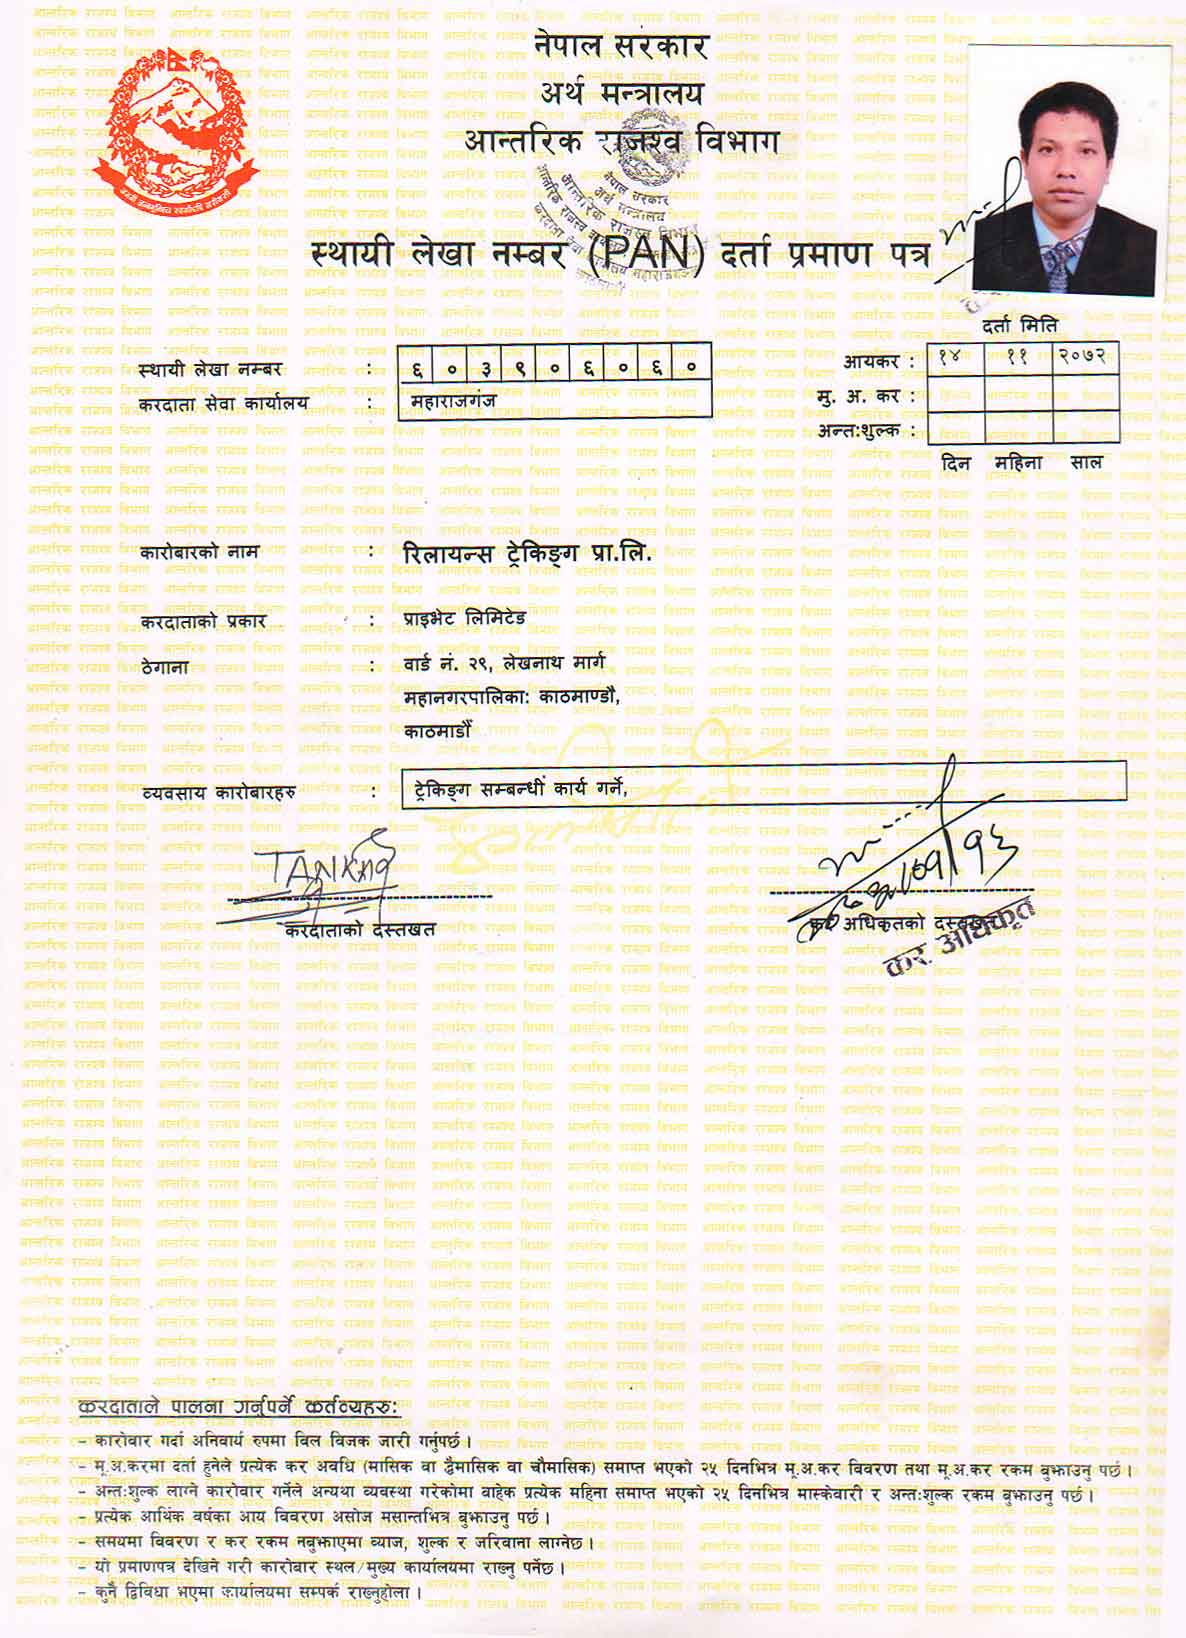 नेपाल सरकार
अर्थ मन्त्रालय
आन्तरिक राजश्व विभाग
नेपाल सरकार
अर्थ मन्त्रालय
आन्तरिक राजस्व विभाग
स्थायी लेखा नम्बर (PAN) दर्ता प्रमाण पत्र
दर्ता मिति
स्थायी लेखा नम्बर : ६ ० ३ ९ ० ६ ० ६ ०
आयकर : १४ ११ २०७२
करदाता सेवा कार्यालय : महाराजगंज
मु. अ. कर :
अन्त:शुल्क :
दिन महिना साल
कारोबारको नाम : रिलायन्स ट्रेकिङ्ग प्रा.लि.
करदाताको प्रकार : प्राइभेट लिमिटेड
ठेगाना : वार्ड नं. २९, लेखनाथ मार्ग
महानगरपालिका: काठमाण्डौ,
काठमाडौं
व्यवसाय कारोबारहरु : ट्रेकिङ्ग सम्बन्धी कार्य गर्ने,
करदाताको दस्तखत
कर अधिकृतको दस्तखत
कर अधिकृत
करदाताले पालना गर्नुपर्ने कर्तव्यहरु:
- कारोवार गर्दा अनिवार्य रुपमा विल विजक जारी गर्नुपर्छ ।
- मू.अ.करमा दर्ता हुनेले प्रत्येक कर अवधि (मासिक वा द्वैमासिक वा चौमासिक) समाप्त भएको २५ दिनभित्र मू.अ.कर विवरण तथा मू.अ.कर रकम बुझाउनु पर्छ ।
- अन्त:शुल्क लाग्ने कारोवार गर्नेले अन्यथा व्यवस्था गरेकोमा वाहेक प्रत्येक महिना समाप्त भएको २५ दिनभित्र मास्केवारी र अन्त:शुल्क रकम बुझाउनु पर्छ ।
- प्रत्येक आर्थिक वर्षका आय विवरण असोज मसान्तभित्र बुझाउनु पर्छ ।
- समयमा विवरण र कर रकम नबुझाएमा व्याज, शुल्क र जरिवाना लाग्नेछ ।
- यो प्रमाणपत्र देखिने गरी कारोबार स्थल/मुख्य कार्यालयमा राख्नु पर्नेछ ।
- कुनै द्विविधा भएमा कार्यालयमा सम्पर्क राख्नुहोला ।